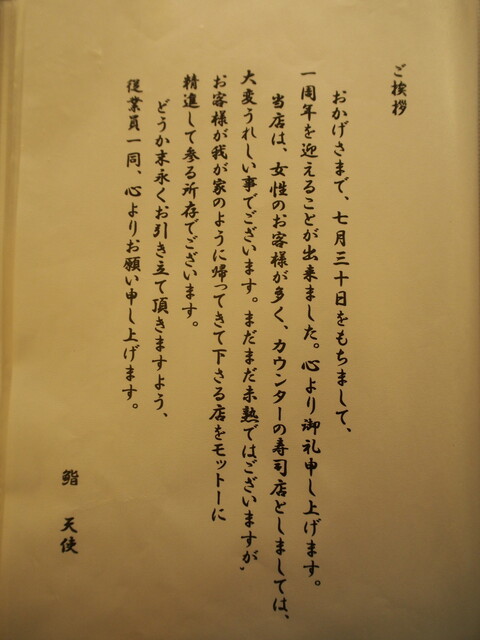 ご挨拶
おかげさまで、七月三十日をもちまして、
一周年を迎えることが出来ました。心より御礼申し上げます。
当店は、女性のお客様が多く、カウンターの寿司店としましては、
大変うれしい事でございます。まだまだ未熟ではございますが、
お客様が我が家のように帰ってきて下さる店をモットーに
精進して参る所存でございます。
どうか末永くお引き立て頂きますよう、
従業員一同、心よりお願い申し上げます。
鮨 天使